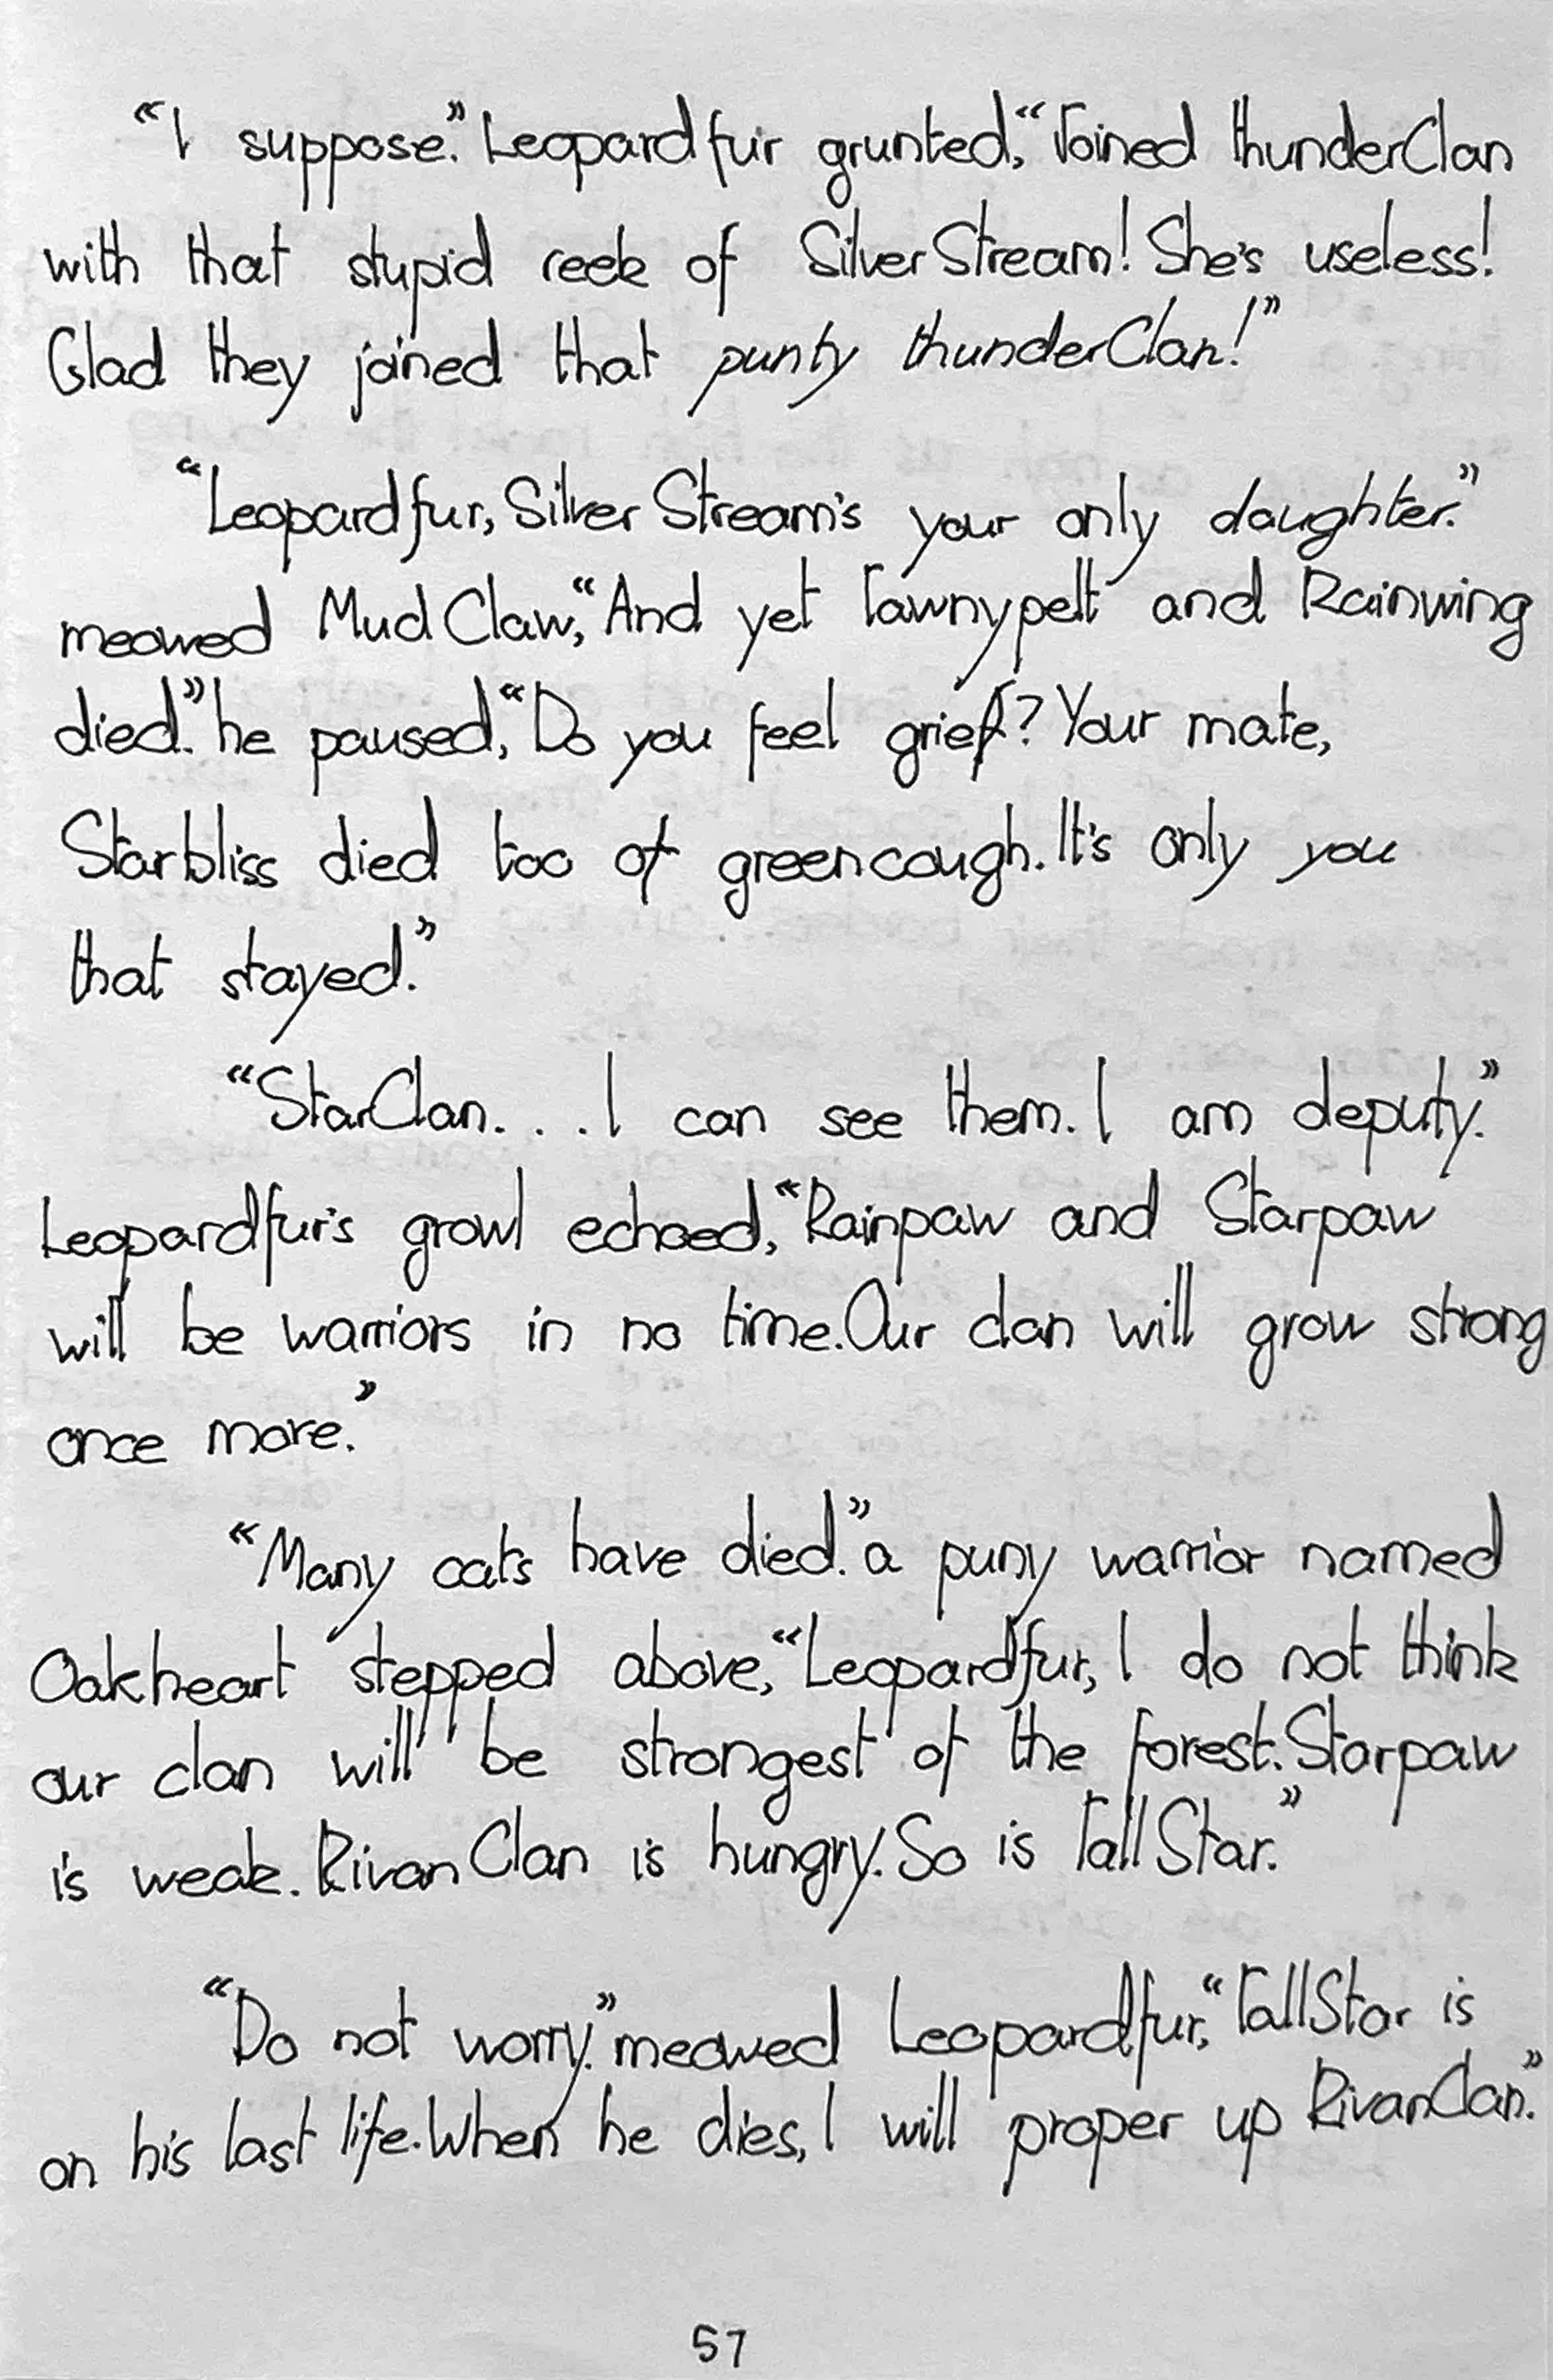 “I suppose.” Leopardfur grunted, “Joined thunderClan
with that stupid reek of SilverStream! She's useless!
Glad they joined that punty thunderClan!”
“Leopardfur, SilverStream's your only daughter.”
meowed MudClaw, “And yet Tawnypelt and Rainwing
died.” he paused, “Do you feel grief? Your mate,
Starbliss died too of greencough. It's only you
that stayed.”
“StarClan. . . I can see them. I am deputy.”
Leopardfur's growl echoed, “Rainpaw and Starpaw
will be warriors in no time. Our clan will grow strong
once more.”
“Many cats have died.” a puny warrior named
Oakheart stepped above, “Leopardfur, I do not think
our clan will be strongest of the forest. Starpaw
is weak. RivanClan is hungry. So is TallStar.”
“Do not worry.” meowed Leopardfur, “TallStar is
on his last life. When he dies, I will proper up RivanClan.”
57